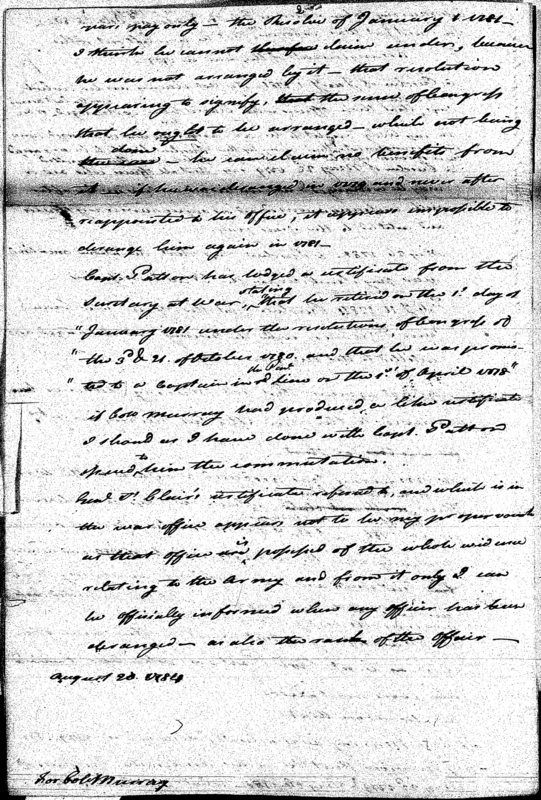 years pay only — the Resolve of January 1 1781 —
I think he cannot claim under, because
he was not arranged by it — that resolution
appearing to signify, that the sense of Congress
that he ought to be arranged — which not being
done
the case — he can claim no benefits from
it — if he was deranged in 1779 and never after
reappointed to his office, it appears impossible to
derange him again in 1781 —
Capt. Patton has lodged a certificate from the
stating
Secretary at War, that he retired on the 1st. day of
"January 1781 under the resolutions of Congress of
" the 3d & 21. of October 1780. and that he was promo-
" ted to a Captain in line on the 1st of April 1778"
if Colo Murray had produced a like certificate
I should as I have done with Capt. Patton
to
him the commutation.
Genl. St. Clair's certificate referred to, and which is in
the war office appears not to be my proper vouch
as that office is possessed of the whole evidence
relating to the Army and from it only I can
be officially informed when any officer has been
deranged — as also the rank of the Officer —
August 20. 1784
for Colo Murray